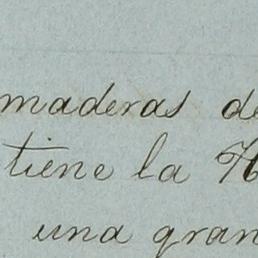 maderas de
tiene la H
una gran